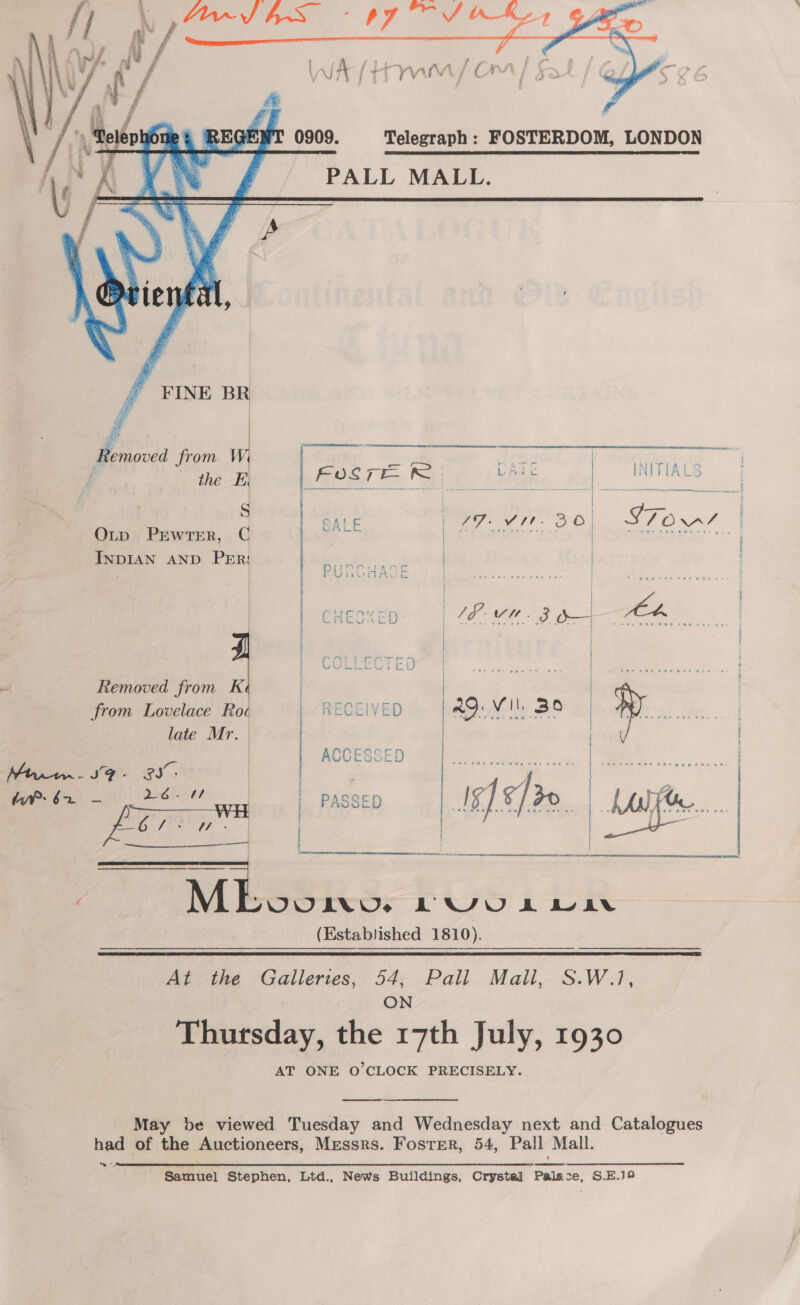 17th July
WA/HMM/CM/Sal/
Telephone: REGENT 0909. Telegraph: FOSTERDOM, LONDON
PALL MALL.
CATALOGUE
OF
Oriental, Continental and Old English
China
FINE BR
Removed from W
the E
S
OLD PEWTER, C
INDIAN AND PER
Removed from Ke
from Lovelace Roa
late Mr.
26. 11
WH
FOSTER DATE INITIALS
SALE 17. VII. 30 STOW
PURCHASE
CHECKED 18. VII. 30
COLLECTED
RECEIVED 29. VII. 30
ACCESSED
PASSED 18/8/30
MESSRS. FOSTER
(Established 1810).
At the Galleries, 54, Pall Mall, S.W.1,
ON
Thursday, the 17th July, 1930
AT ONE O'CLOCK PRECISELY.
May be viewed Tuesday and Wednesday next and Catalogues
had of the Auctioneers, MESSRS. FOSTER, 54, Pall Mall.
Samuel Stephen, Ltd., News Buildings, Crystal Palace, S.E.19